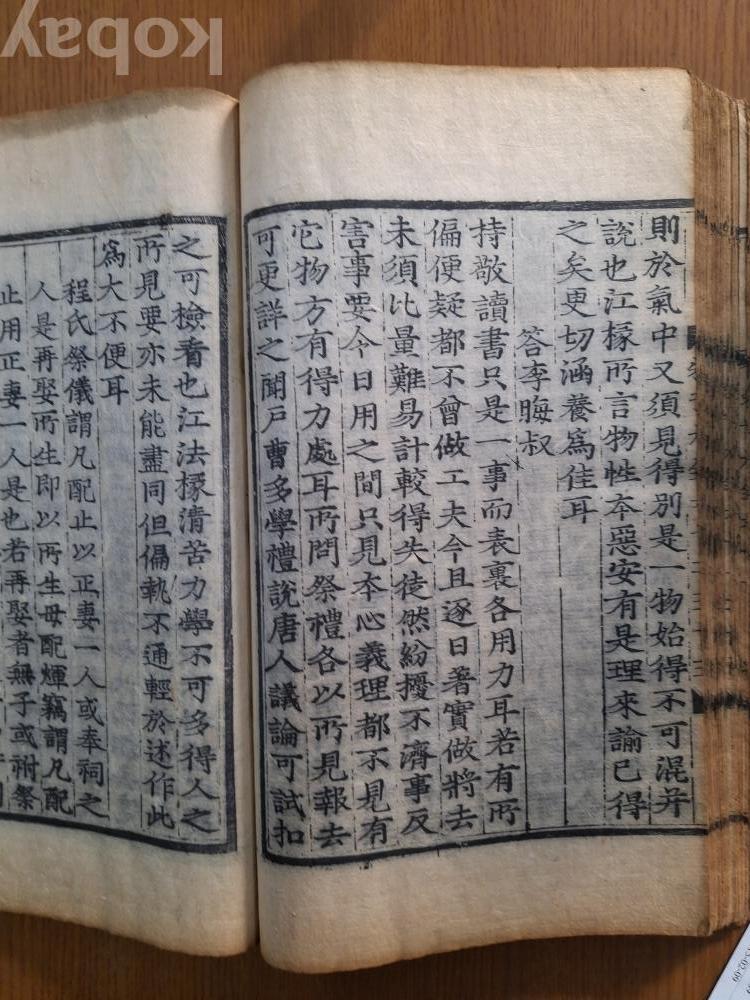 則於氣中又須見得別是一物始得不可混并
說也江㯳所言物性本惡安有是理來諭已得
之矣更切涵養爲佳耳
答李晦叔
持敬讀書只是一事而表裏各用力耳若有所
偏便疑都不曾做工夫今且逐日著實做將去
未須比量難易計較得失徒然紛擾不濟事反
害事要今日用之間只見本心義理都不見有
它物方有得力處耳所問祭禮各以所見報去
可更詳之聞戶曹多學禮說唐人議論可試扣
之可檢看也江法㯳清苦力學不可多得人之
所見要亦未能盡同但偏執不通輕於述作此
爲大不便耳
程氏祭儀謂凡配止以正妻一人或奉祠之
人是再娶所生即以所生母配輝竊謂凡配
止用正妻一人是也若再娶者無子或祔祭
kobay